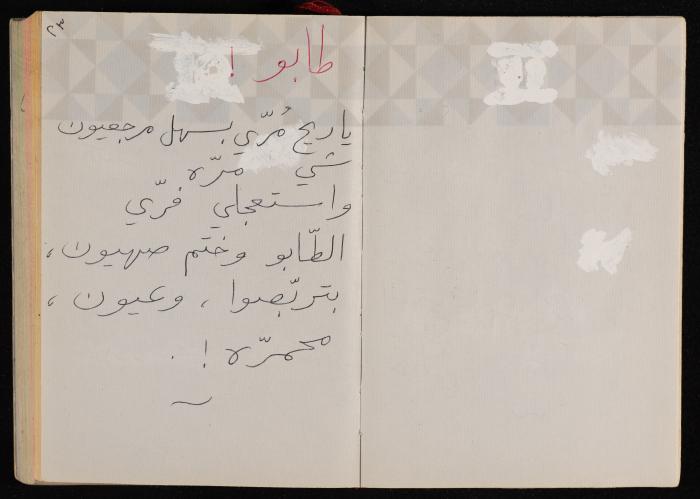 ٢٣
طابو !
يا ريح مُرّي بسهل مرجعيون
شي مرّه
واستعجلي فرّي
الطّابو وختم صهيون،
بتربّصوا، وعيون،
محمرّه !.